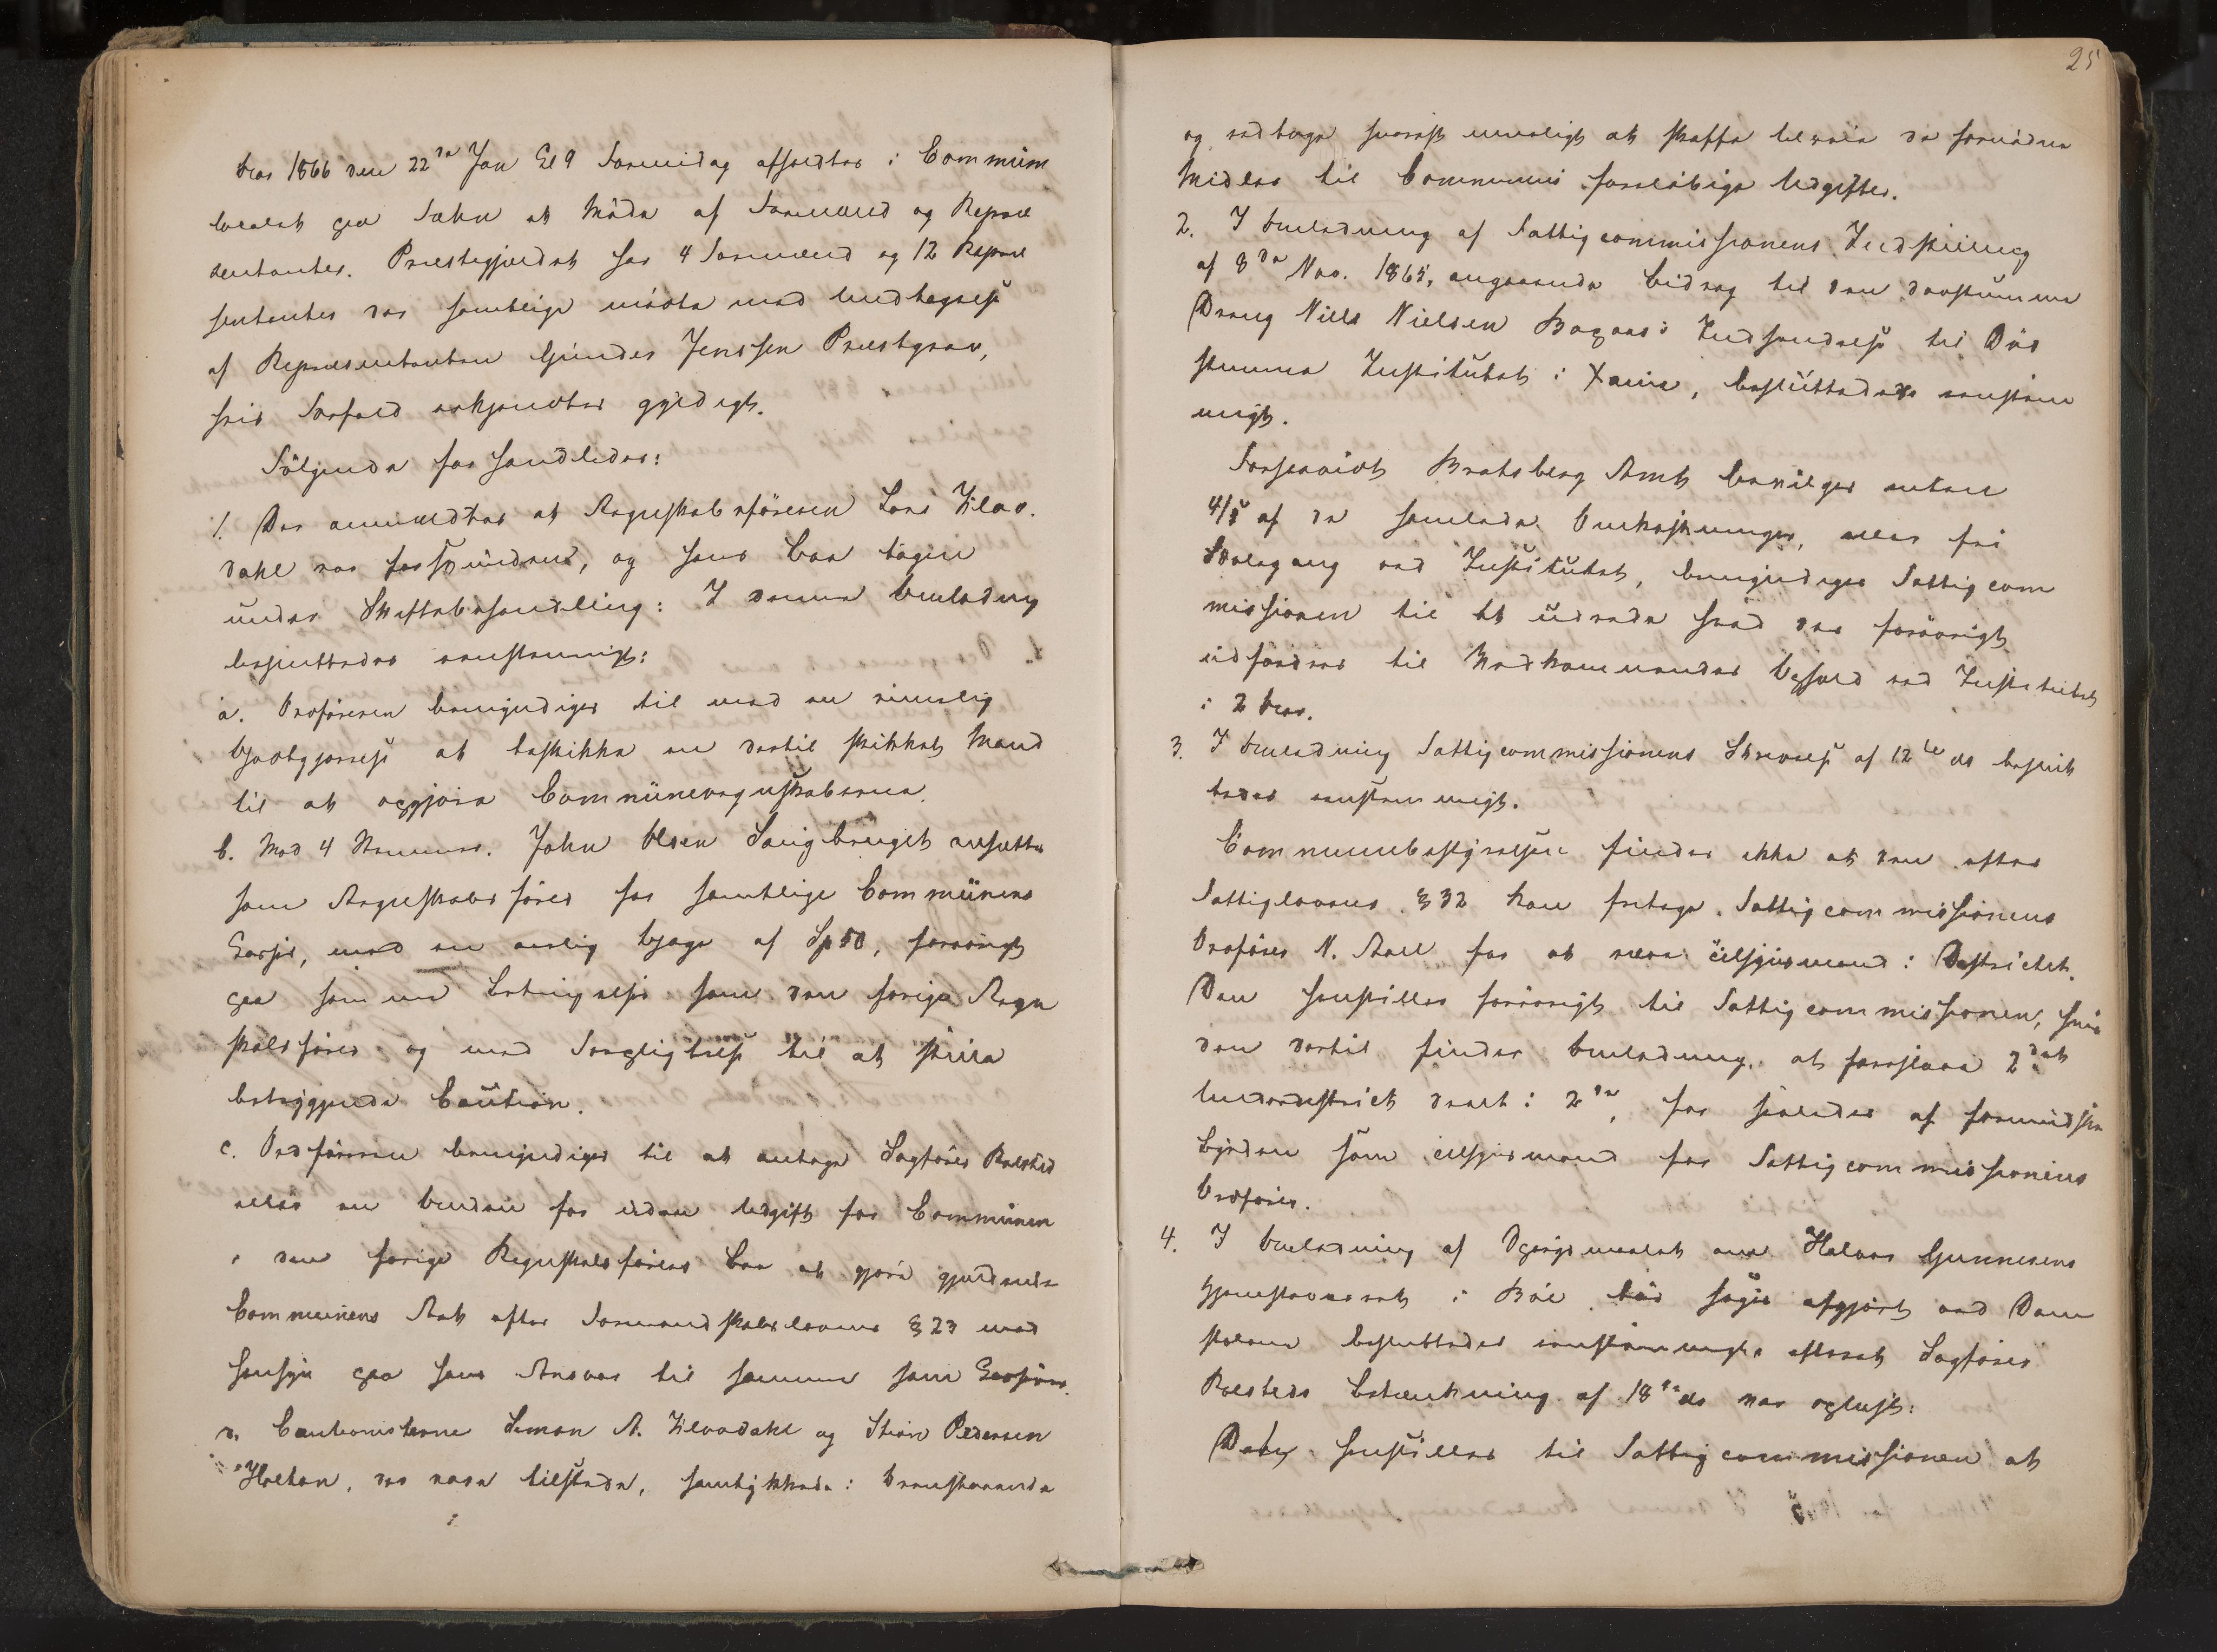 Aar 1866 den 22de Jan Kl 9 Formidag afholdtes i Commun
localet paa Fæhn et Møde af Formænd og Repræ
sentanter. Præstegjeldet har 4 Formænd og 12 Repræ
sentanter der samtlige mødte med Undtagelse
af Repræsentanten Gunder Jenssen Præstgrav,
hvis Forfald erkjendtes gyldigt.
Følgende forhandledes:
1. Der anmeldtes at Regnskabsføreren Lars Kleov.
dahl var forsvunden, og hans Bo tagen
under Skiftebehandling: I denne Anledning
besluttedes eenstemmigt:
a. Ordføreren bemyndiges til mod en rimelig
Godtgjørelse at beskikke en dertil skikket Mand
til at opgjøre Communeregnskaberne.
b. Mod 4 Stemmer. John Olsen Haugbrugst ansættes
som Regnskabsfører for samtlige Communens
Kasser, mod en aarlig Gage af Sp 50, forøvrigt
paa samme Betingelser som den forrige Regn
skabsfører og med Forpligtelse til at stille
betryggende Caution.
c. Ordføreren bemyndiges til at antage Sagfører Rolsted
eller en Anden for uden Udgift for Communen
i den forrige Regnskabsførers Bo at gjøre gjeldende
Communens Ret efter Formandskabslovens § 23 med
Hensyn paa hans Ansvar til samme som Kasserer.
d. Cautionisterne Simon A. Kleovdahl og Steen Pedersen
Holtan, der vare tilstede, samtykkede i Ovenstaaende
25
og vedtoge snarest muligt at skaffe tilveie de fornødne
Midler til Communens foreløbige Udgifter.
2. I Anledning af Fattigcommissionens Indstilling
af 8de Nov. 1865, angaaende Bidrag til den døvstumme
Dreng Niels Nielsen Bogaas's Indsendelse til Døv
stumme Institutet i Xania, besluttedes eenstem
migt.
Forsaavidt Bratsberg Amt bevilger enten
4/5 af de samlede Omkostninger, eller fri
Skolegang ved Institutet, bemyndiges Fattigcom
missionen til at udrede hvad der forøvrigt
udfordres til Vedkommendes Ophold ved Institutet
i 2 Aar.
3. I Anledning Fattigcommissionens Skrivelse af 12te ds beslut
tedes eenstemmigt.
Communebestyrelsen finder ikke at den efter
Fattiglovens § 32 kan fritage Fattigcommissionens
Ordfører N. Aall for at være Tilsynsmand i Districtet.
Den henstiller forøvrigt til Fattigcommissionen, hvis
den dertil finder Anledning, at foreslaae 2det
Underdistrict deelt i 2de, for saaledes at formindske
Byrden som Tilsynsmand for Fattigcommissionens
Ordfører.
4. I Anledning af Spørgsmaalet om Halvor Gunnesens
Hjemstavnsret i Bøe bør søges afgjort ved Dom
stolene besluttedes eenstemmigt efterat Sagfører
Rolsteds Betænkning af 18de ds var oplæst:
Det henstilles til Fattigcommissionen at